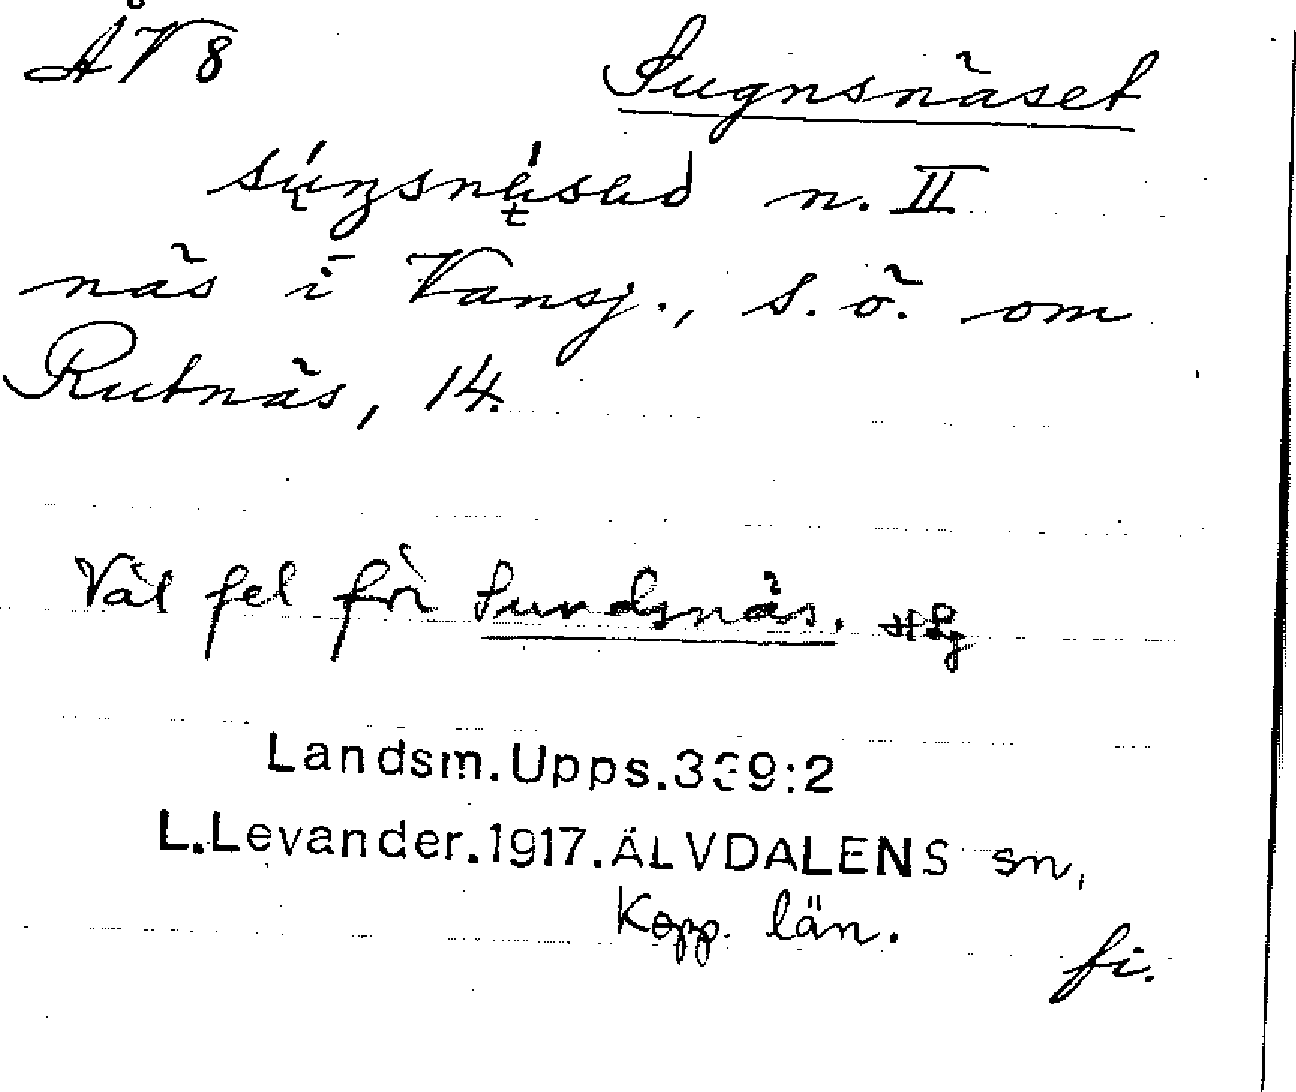 ÅV 8 Sugnsnäset
n. II
näs i Vansj., s. ö. om
Rutnäs, 14.
Väl fel för Sundsnäs. HLg
Landsm.Upps.339:2
L.Levander.1917.ÄLVDALENS sn,
Kopp. län.
fi.